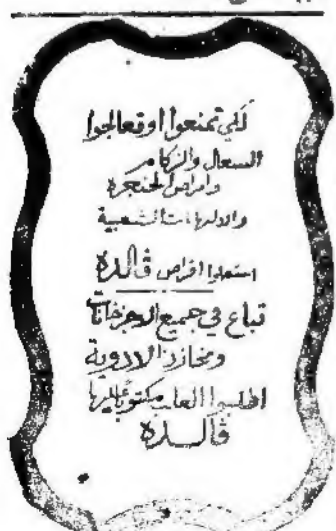 لكي تمنعوا او تعالجوا
السعال والزكام
وامراض الحنجرة
والالتهابات الشعبية
استعملوا اقراص ڤالدة
تباع في جميع الاجزخانات
ومخازن الادوية
اطلبوا العلب مكتوب عليها
ڤالدة